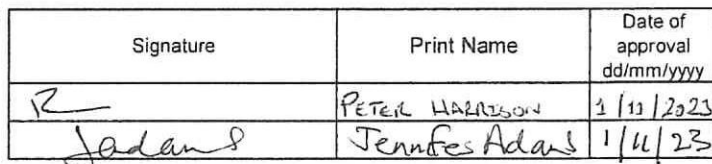 Signature Print Name Date of
approval
dd/mm/yyyy
PETER HARRISON 1/11/2023
Jadams Jennifer Adams 1/11/23